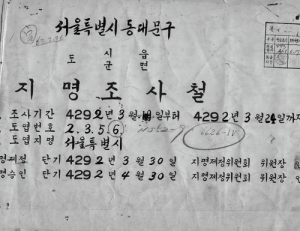 서울특별시 동대문구
도 시 읍
군 면
지 명 조 사 철
조사기간 4292년 3월 일부터 4292년 3월 24일까지
도엽번호 2.3.5⑥
도엽지명 서울특별시
단기 4292년 3월 30일 지명제정위원회 위원장
승인 단기 4292년 4월 30일 지명제정위원회 위원장